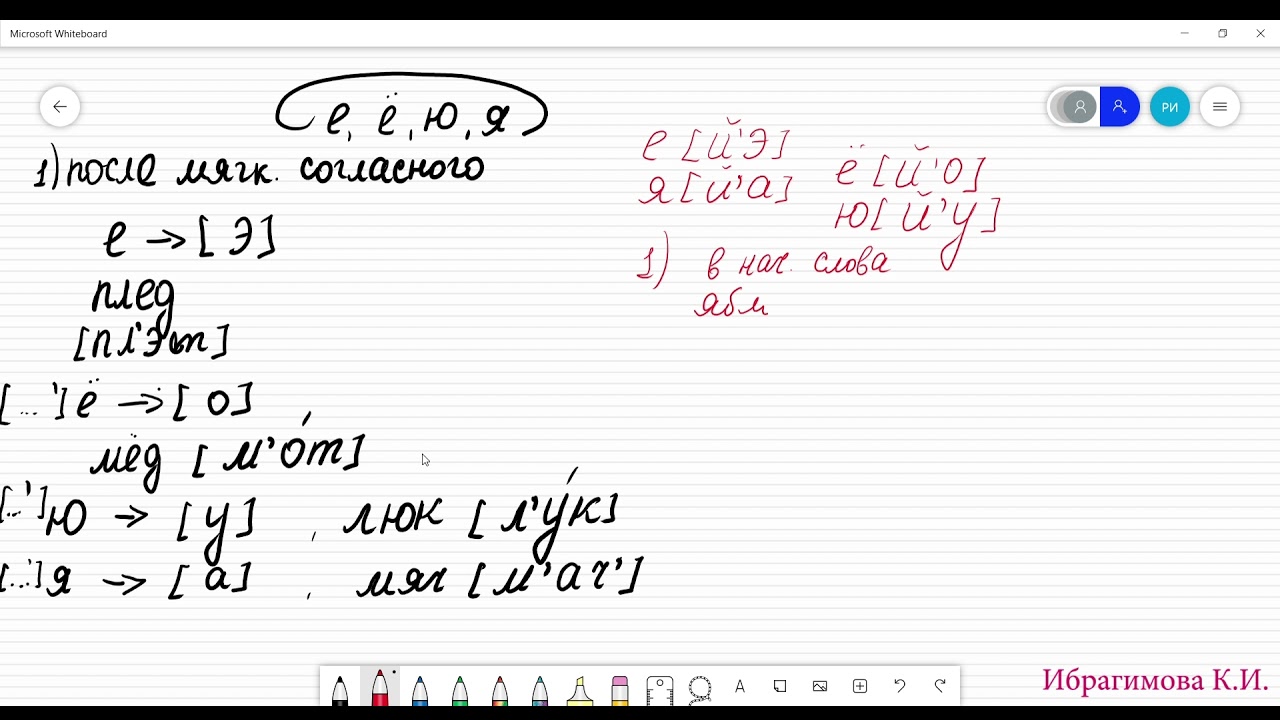 Microsoft Whiteboard
е, ё, ю, я
1) после мягк. согласного
е → [Э]
плед
[пл'Эт]
[...'] ё → [о] ,
мёд [м'о́т]
[...'] ю → [у] , люк [л'у́к]
[...'] я → [а] , мяч [м'ач']
е [й'Э]
я [й'а]
ё [й'о]
ю [й'у]
1) в нач. слова
ябл
РИ
A
Ибрагимова К.И.